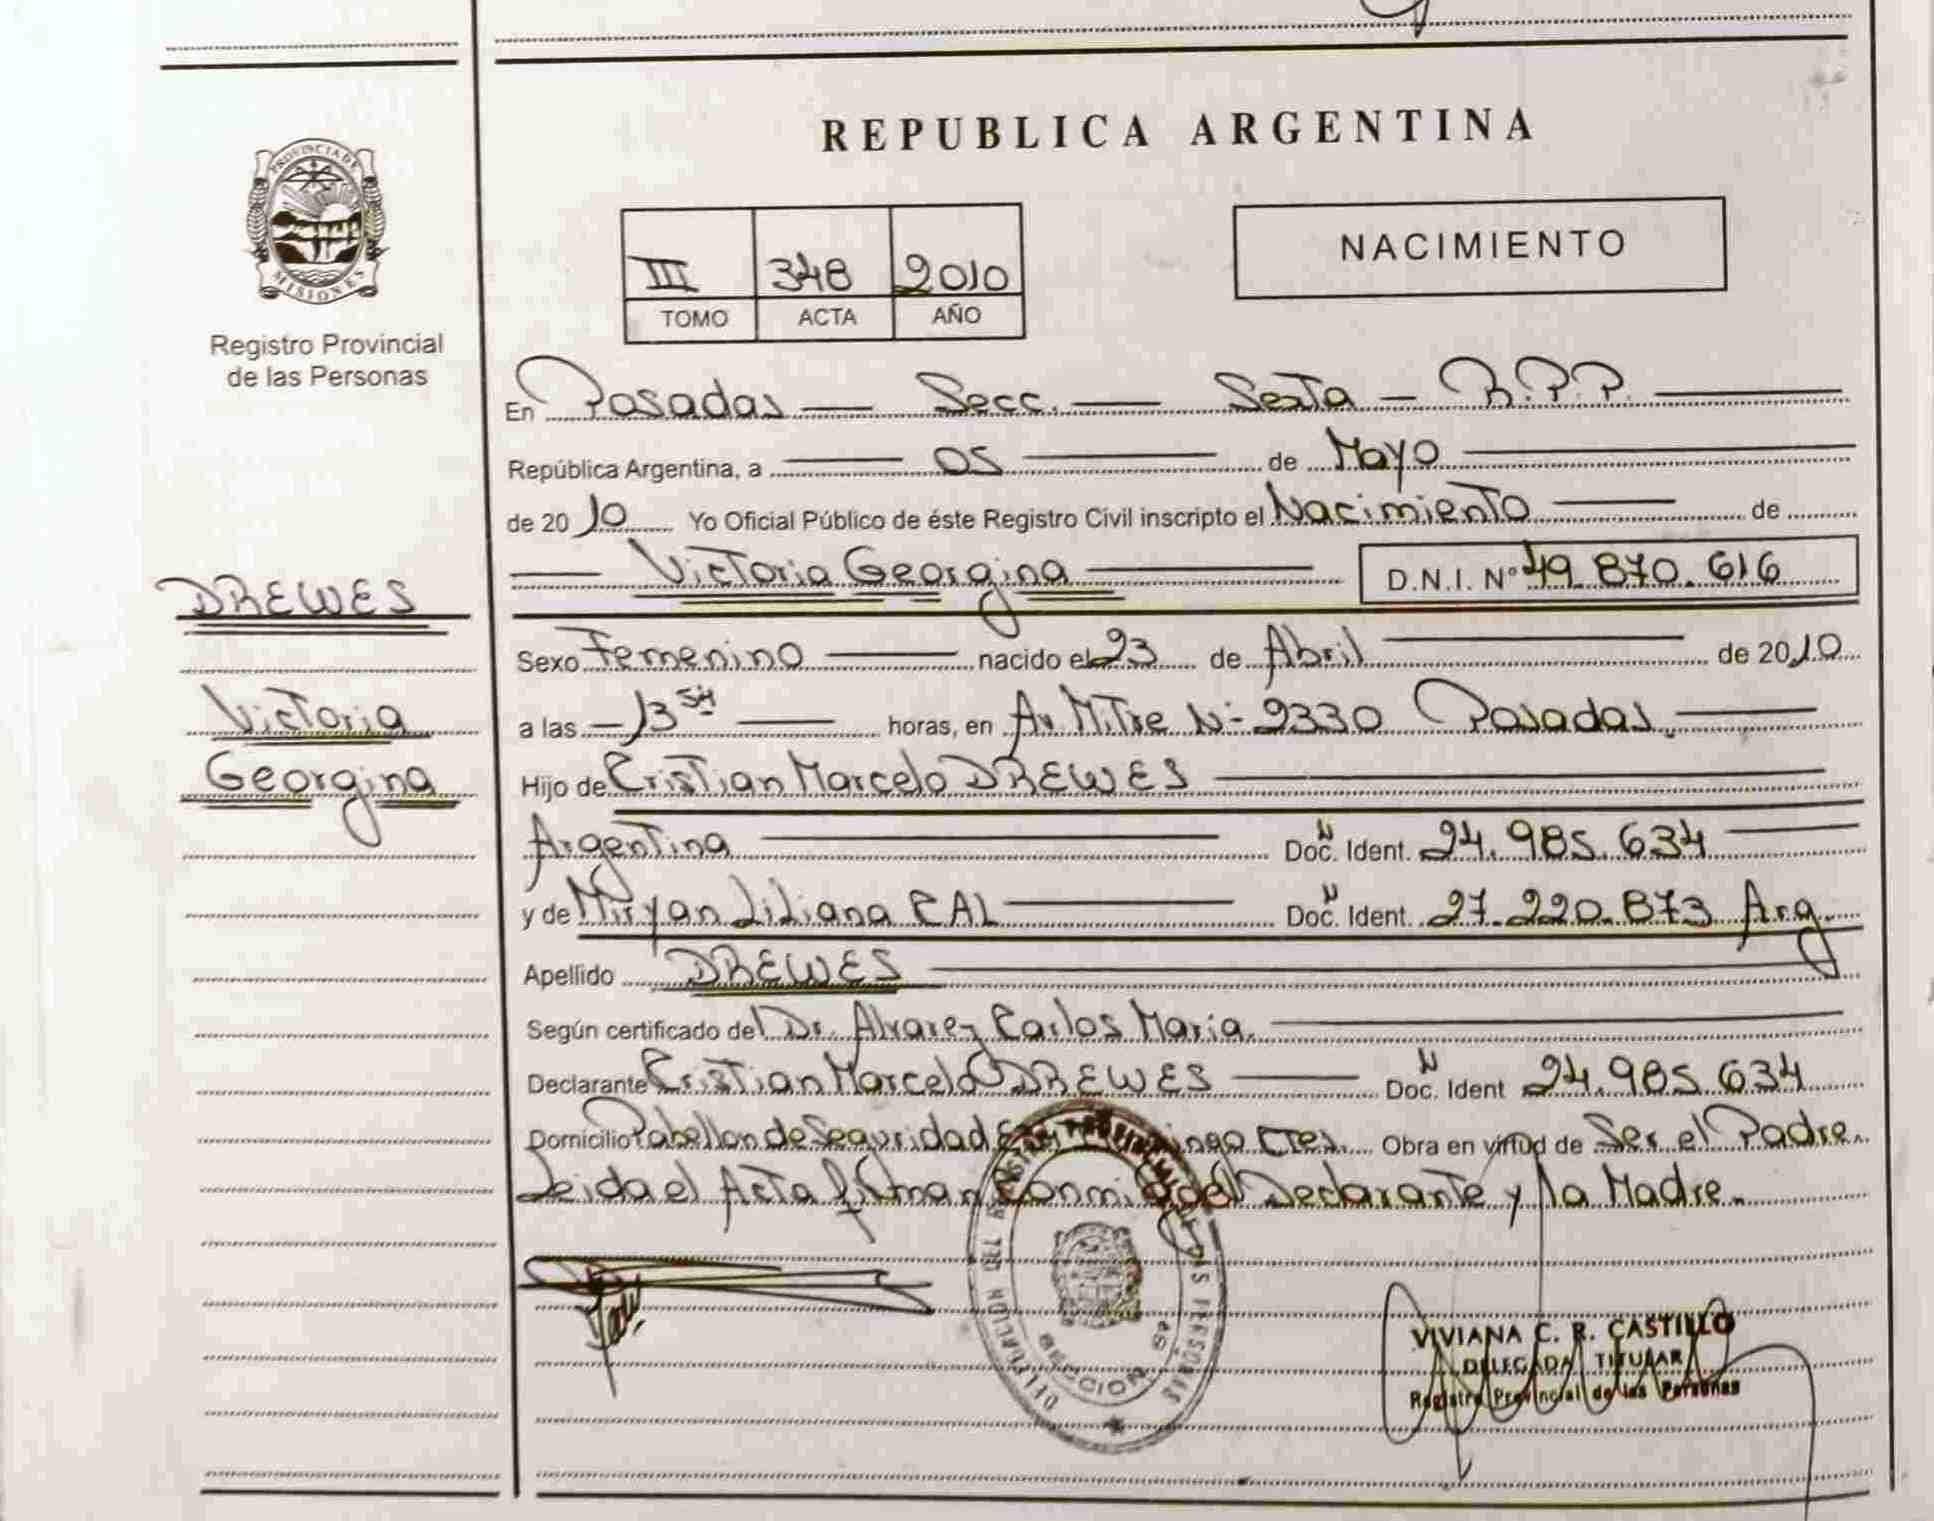 PROVINCIA DE
MISIONES
Registro Provincial
de las Personas
DREWES
Victoria
Georgina
REPUBLICA ARGENTINA
III 348 2010
TOMO ACTA AÑO
NACIMIENTO
En Posadas — Secc. — Sexta — R.P.P. —
República Argentina, a — 05 — de Mayo —
de 2010 Yo Oficial Público de éste Registro Civil inscripto el Nacimiento — de
— Victoria Georgina — D.N.I. Nº 49.870.616
Sexo Femenino — nacido el 23 de Abril — de 2010
a las — 13 54 — horas, en Av. Mitre Nº 2330 Posadas. —
Hijo de Cristian Marcelo DREWES —
Argentina — Doc. N Ident. 24.985.634 —
y de Miryan Liliana CAL — Doc. N Ident. 27.220.873 Arg.
Apellido DREWES —
Según certificado del Dr. Alvarez Carlos Maria. —
Declarante Cristian Marcelo DREWES — Doc. N Ident 24.985.634
Domicilio Pabellon de Seguridad Ctes. Obra en virtud de Ser el Padre.
Leida el Acta firman conmigo el Declarante y la Madre.
DELEGACION DEL REGISTRO PROVINCIAL DE LAS PERSONAS
SECCION 6ª
VIVIANA C. R. CASTILLO
DELEGADA TITULAR
Registro Provincial de las Personas